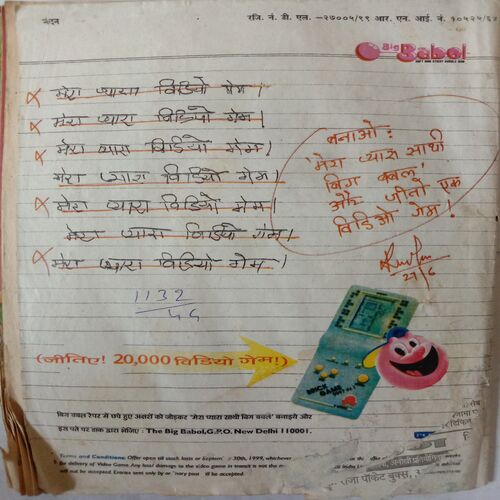 नंदन
रजि. नं. डी. एल. –२७००५/९९ आर. एन. आई. नं. १०५२५/६४
Big Babol
SOFT AND STICKY BUBBLE GUM
मेरा प्यारा विडियो गेम।
मेरा प्यारा विडियो गेम।
मेरा प्यारा विडियो गेम।
मेरा प्यारा विडियो गेम।
मेरा प्यारा विडियो गेम।
मेरा प्यारा विडियो गेम।
मेरा प्यारा विडियो गेम।
बनाओ:
'मेरा प्यारा साथी
बिग बबल'
और जीतो एक
विडिओ गेम!
27/6
1132
44
(जीतिए! 20,000 विडियो गेम!)
BRICK
GAME
बिग बबल रैपर में छपे हुए अक्षरों को जोड़कर 'मेरा प्यारा साथी बिग बबल' बनाइये और
इस पते पर डाक द्वारा भेजिए : The Big Babol,G.P.O. New Delhi 110001.
Terms and Conditions: Offer open till stock lasts or 30th, 1999, whichever
for delivery of Video Game Any loss/ damage to the video game in transit is not the
will not be accepted. Entries sent only by ordinary post will be accepted.
राजा पॉकेट बुक्स,